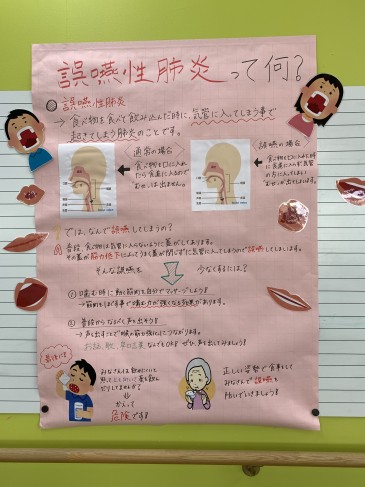 誤嚥性肺炎って何?
誤嚥性肺炎
→ 食べ物を食べて飲み込んだ時に、気管に入ってしまう事で
起きてしまう肺炎のことです。
通常の場合
食べ物を口に入れ
たら食道に入るので
むせは出ません。
誤嚥の場合
食べ物を口に入れた時
に食道に入らず気管
の方に入ってしまい
むせが出てしまいます。
Q では、なんで誤嚥してしまうの?
A 普段、食べ物は気管に入らないように蓋がしてあります。
その蓋が筋力低下によってうまく蓋が閉じずに気管に入ってしまうので誤嚥してしまいます。
そんな誤嚥を 少なくするには?
① 噛む時に動く筋肉を自分でマッサージしよう!
② 普段からなるべく声を出そう!
→ 声を出すことで喉の筋力強化につながります。
お話、歌、早口言葉 なんでもOK! ぜひ、声を出してみましょう!
最後に
みなさんは飲みにくい
かえって
危険です!
正しい姿勢で食事をして
みなさんで誤嚥を
防いでいきましょう!